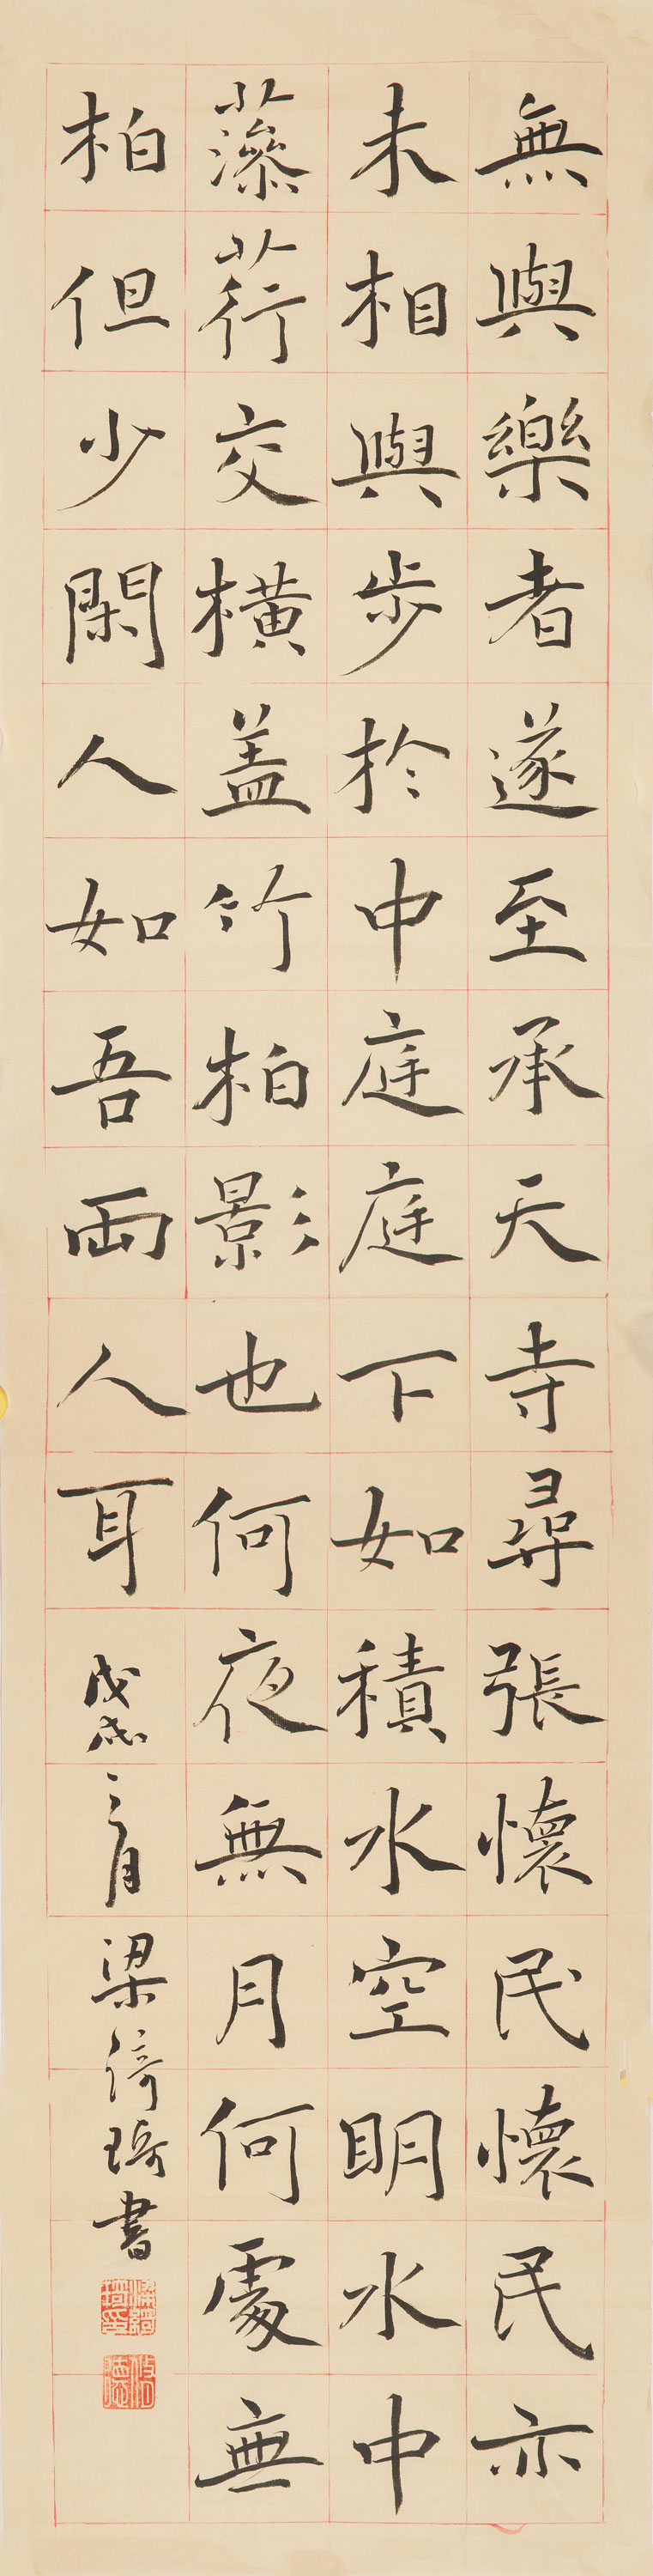 無與樂者遂至承天寺尋張懷民懷民亦
未相與步於中庭庭下如積水空明水中
藻荇交橫蓋竹柏影也何夜無月何處無
柏但少閑人如吾兩人耳
戊戌二月 梁綺琦書